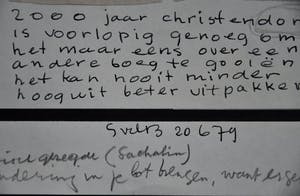 2000 jaar christendom
is voorlopig genoeg om
het maar eens over een
andere boeg te gooiën
het kan nooit minder
hooguit beter uitpakken
20679
(Sachalin)
in je lot brengen, want er